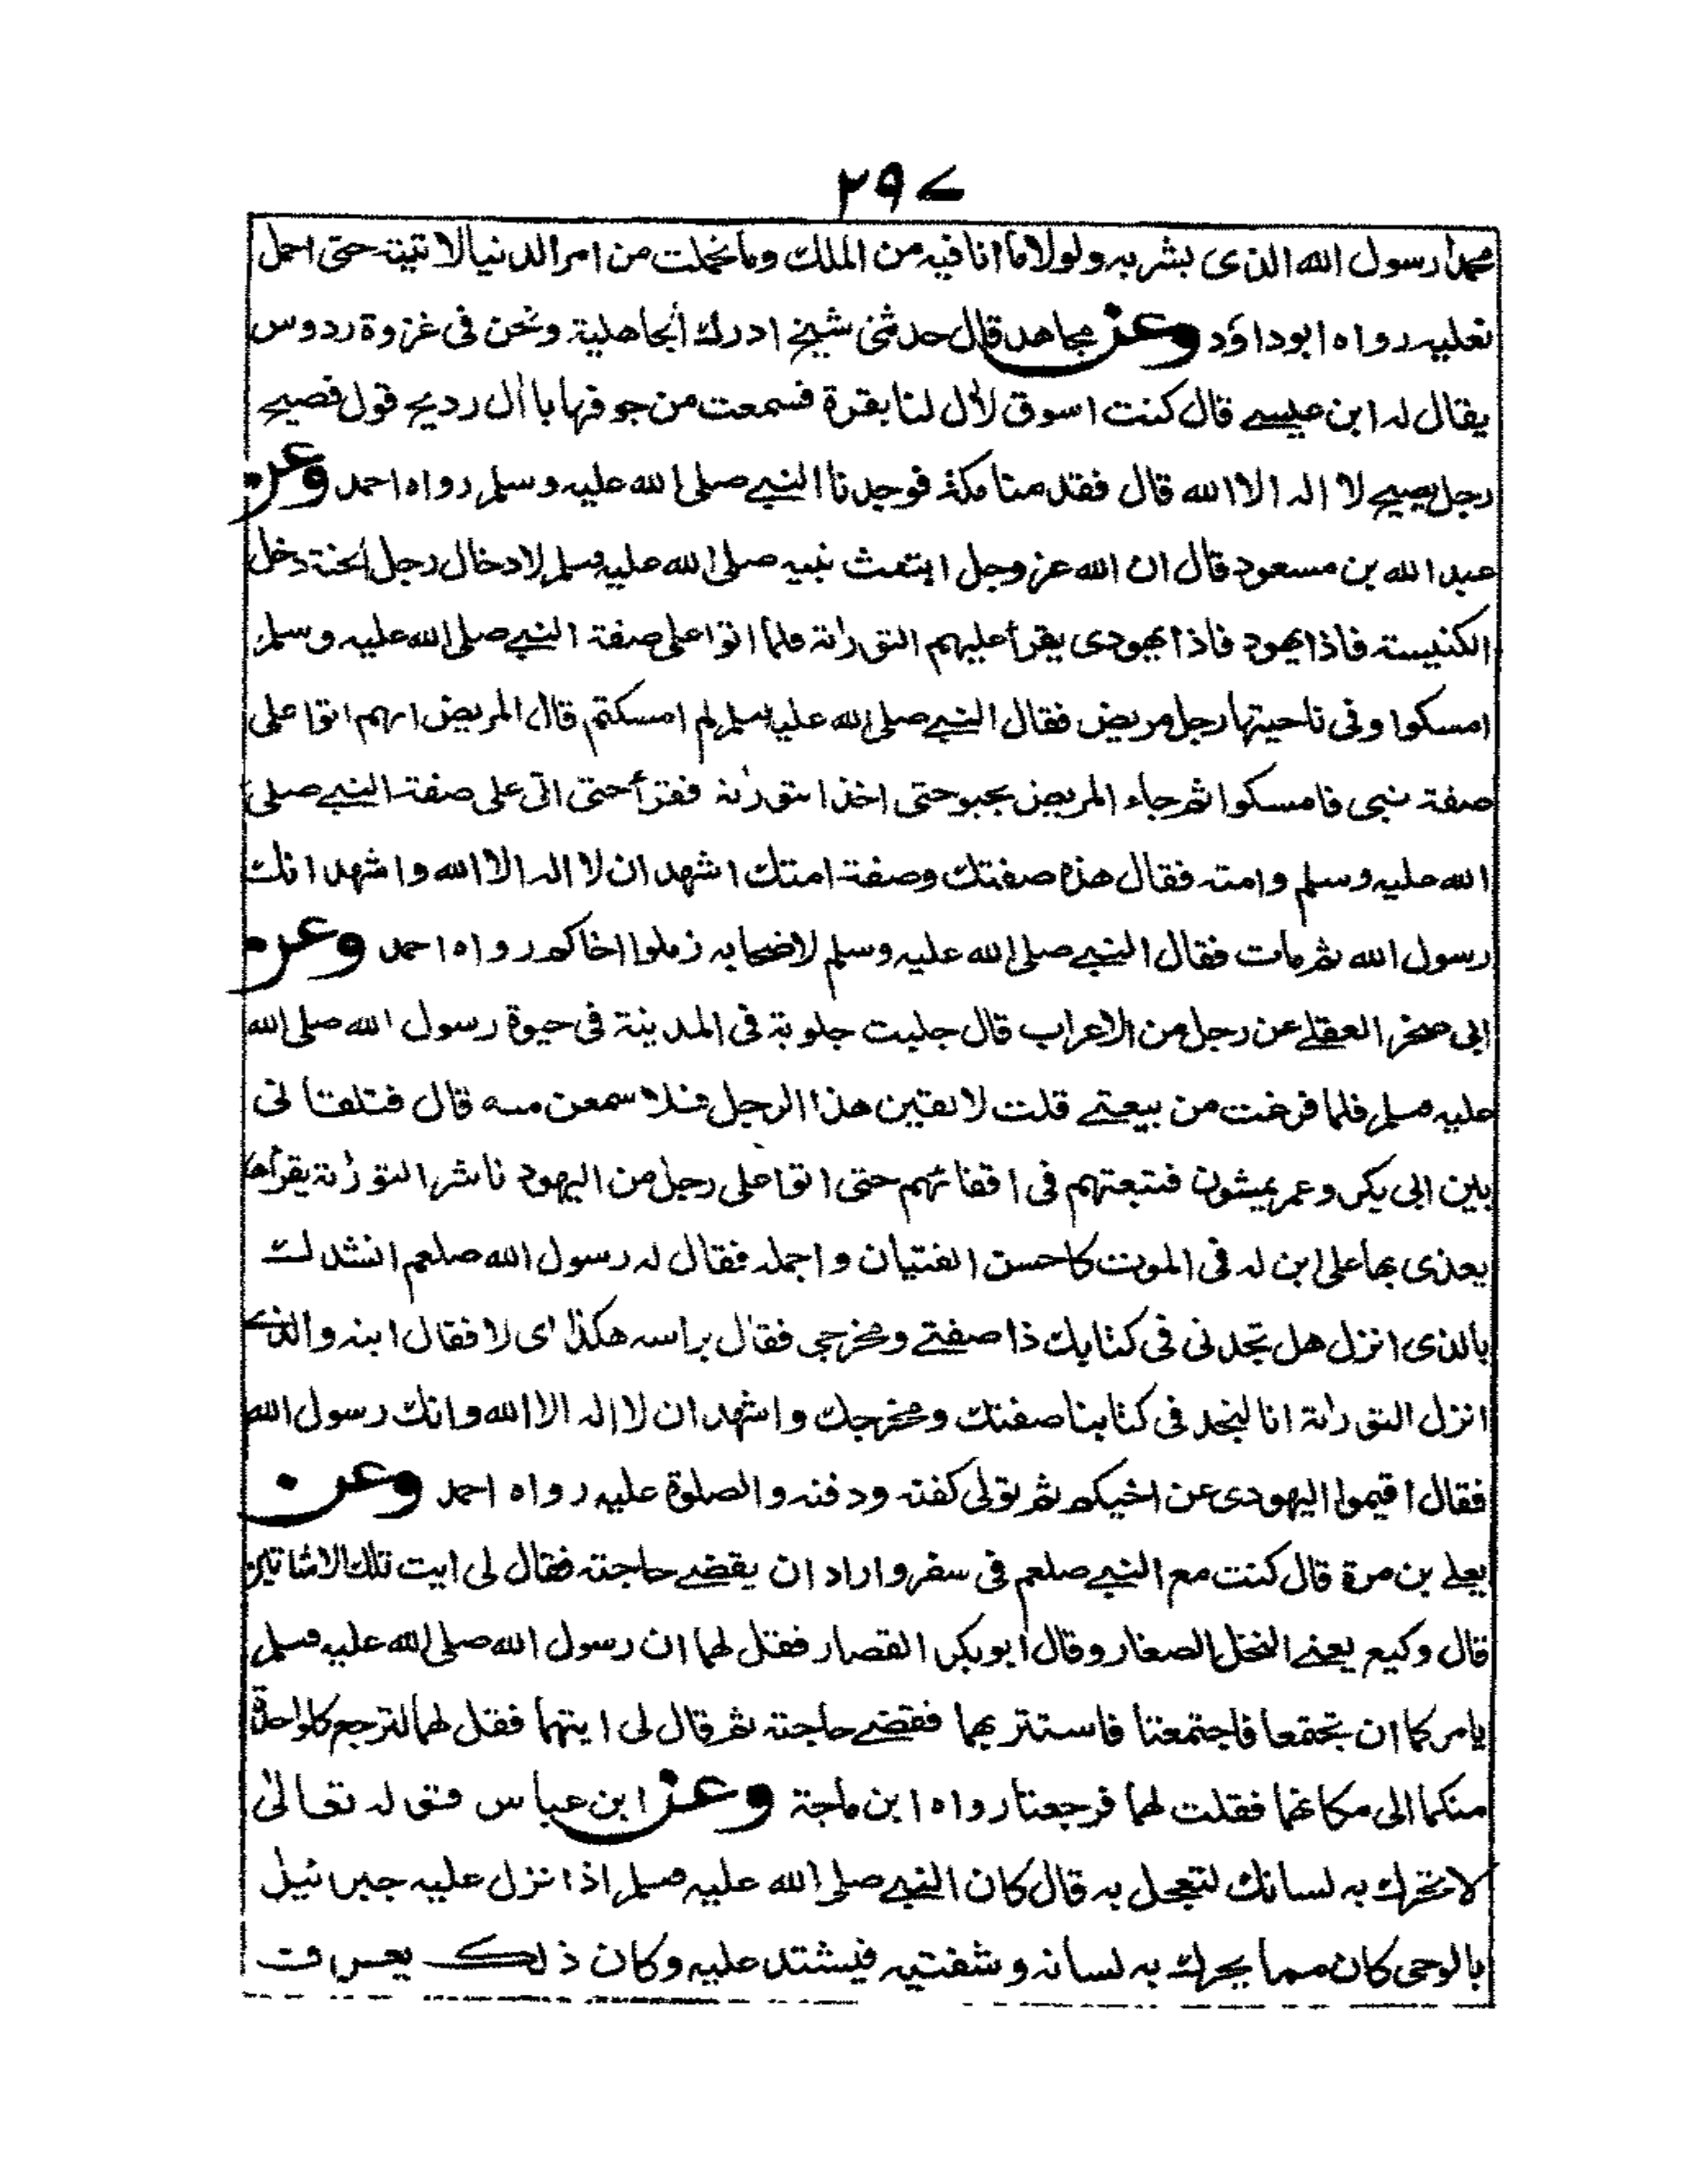 ٢٩٧
محمدا رسول الله الذى بشر به ولولا ما انا فيه من الملك وما تحملت من امر الدنيا لاتيته حتى احمل
نعليه رواه ابوداؤد وعن مجاهد قال حدثنى شيخ ادرك الجاهلية ونحن فى غزوة ردوس
يقال له ابن عيسى قال كنت اسوق لأل لنا بقرة فسمعت من جوفها يا أل رديح قول فصيح
رجل يصيح لا اله الا الله قال فقدمنا مكة فوجدنا النبي صلى الله عليه وسلم رواه احمد وعن
عبد الله بن مسعود قال ان الله عز وجل ابتعث نبيه صلى الله عليه وسلم لادخال رجل الجنة دخل
الكنيسة فاذا يهود فاذا يهودى يقرأ عليهم التورٰىة فلما اتوا على صفة النبي صلى الله عليه وسلم
امسكوا وفى ناحيتها رجل مريض فقال النبي صلى الله عليه وسلم لم امسكتم قال المريض انهم اتوا على
صفة نبى فامسكوا ثم جاء المريض يحبو حتى اخذ التورٰىة فقرأ حتى اتى على صفة النبي صلى
الله عليه وسلم وامته فقال هذه صفتك وصفة امتك اشهد ان لا اله الا الله واشهد انك
رسول الله ثم مات فقال النبي صلى الله عليه وسلم لاصحابه زملوا اخاكم رواه احمد وعن
ابى صخر العقلي عن رجل من الاعراب قال جلبت جلوبة فى المدينة فى حيوة رسول الله صلى الله
عليه وسلم فلما فرغت من بيعتي قلت لالقين هذا الرجل فلاسمعن منه قال فتلقانى
بين ابى بكر وعمر يمشون فتبعتهم فى اقفائهم حتى اتوا على رجل من اليهود ناشر التورٰىة يقرأها
يعزى بها على ابن له فى الموت كاحسن الفتيان واجمله فقال له رسول الله صلعم انشدك
بالذى انزل هل تجدنى فى كتابك ذا صفتي ومخرجى فقال براسه هكذا اى لا فقال ابنه والذي
انزل التورٰىة انا لنجد فى كتابنا صفتك ومخرجك واشهد ان لا اله الا الله وانك رسول الله
فقال اقيموا اليهودى عن اخيكم ثم تولى كفنه ودفنه والصلوة عليه رواه احمد وعن
يعلى بن مرة قال كنت مع النبي صلعم فى سفر واراد ان يقضي حاجته فقال لى ايت تلك الاشاتين
قال وكيع يعني النخل الصغار وقال ابوبكر القصار فقل لهما ان رسول الله صلى الله عليه وسلم
يامركما ان تجتمعا فاجتمعتا فاستتر بهما فقضي حاجته ثم قال لى ايتهما فقل لهما لترجع كل واحدة
منكما الى مكانها فقلت لهما فرجعتا رواه ابن ماجة وعن ابن عباس قوله تعالىٰ
لا تحرك به لسانك لتعجل به قال كان النبي صلى الله عليه وسلم اذا نزل عليه جبرائيل
بالوحى كان مما يحرك به لسانه وشفتيه فيشتد عليه وكان ذلك يعرف